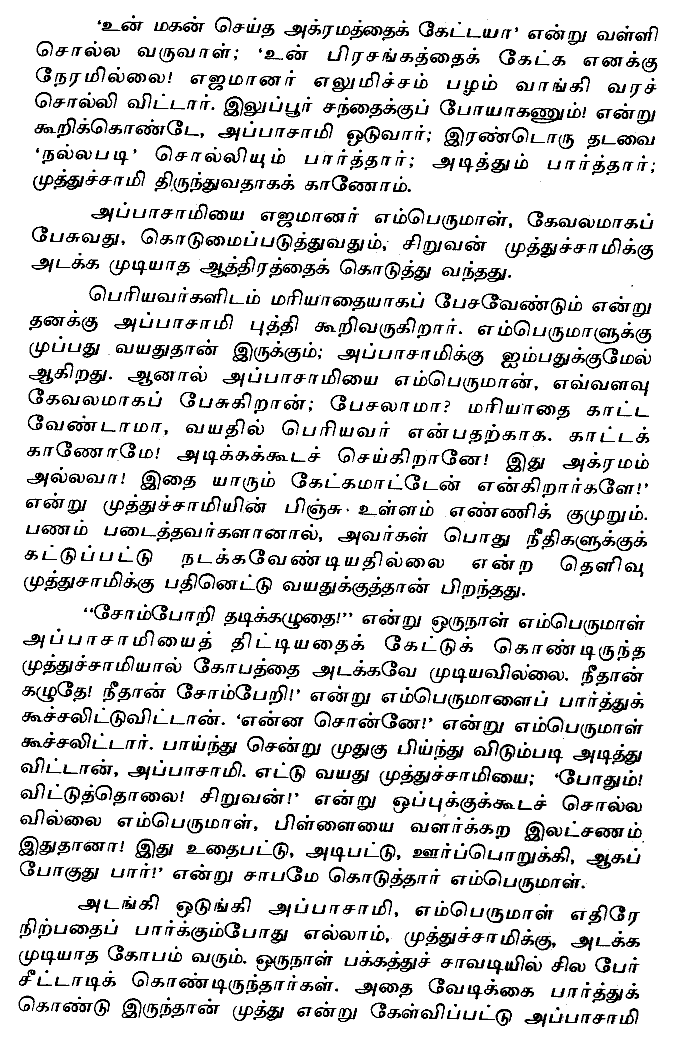 ‘உன் மகன் செய்த அக்ரமத்தைக் கேட்டயா’ என்று வள்ளி
சொல்ல வருவாள்; ‘உன் பிரசங்கத்தைக் கேட்க எனக்கு
நேரமில்லை! எஜமானர் எலுமிச்சம் பழம் வாங்கி வரச்
சொல்லி விட்டார். இலுப்பூர் சந்தைக்குப் போயாகணும்! என்று
கூறிக்கொண்டே, அப்பாசாமி ஒடுவார்; இரண்டொரு தடவை
‘நல்லபடி’ சொல்லியும் பார்த்தார்; அடித்தும் பார்த்தார்;
முத்துச்சாமி திருந்துவதாகக் காணோம்.
அப்பாசாமியை எஜமானர் எம்பெருமாள், கேவலமாகப்
பேசுவது, கொடுமைப்படுத்துவதும், சிறுவன் முத்துச்சாமிக்கு
அடக்க முடியாத ஆத்திரத்தைக் கொடுத்து வந்தது.
பெரியவர்களிடம் மரியாதையாகப் பேசவேண்டும் என்று
தனக்கு அப்பாசாமி புத்தி கூறிவருகிறார். எம்பெருமாளுக்கு
முப்பது வயதுதான் இருக்கும்; அப்பாசாமிக்கு ஐம்பதுக்குமேல்
ஆகிறது. ஆனால் அப்பாசாமியை எம்பெருமான், எவ்வளவு
கேவலமாகப் பேசுகிறான்; பேசலாமா? மரியாதை காட்ட
வேண்டாமா, வயதில் பெரியவர் என்பதற்காக. காட்டக்
காணோமே! அடிக்கக்கூடச் செய்கிறானே! இது அக்ரமம்
அல்லவா! இதை யாரும் கேட்கமாட்டேன் என்கிறார்களே!’
என்று முத்துச்சாமியின் பிஞ்சு உள்ளம் எண்ணிக் குமுறும்.
பணம் படைத்தவர்களானால், அவர்கள் பொது நீதிகளுக்குக்
கட்டுப்பட்டு நடக்கவேண்டியதில்லை என்ற தெளிவு
முத்துசாமிக்கு பதினெட்டு வயதுக்குத்தான் பிறந்தது.
“சோம்போறி தடிக்கழுதை!” என்று ஒருநாள் எம்பெருமாள்
அப்பாசாமியைத் திட்டியதைக் கேட்டுக் கொண்டிருந்த
முத்துச்சாமியால் கோபத்தை அடக்கவே முடியவில்லை. நீதான்
கழுதே! நீதான் சோம்பேறி!’ என்று எம்பெருமாளைப் பார்த்துக்
கூச்சலிட்டுவிட்டான். ‘என்ன சொன்னே!’ என்று எம்பெருமாள்
கூச்சலிட்டார். பாய்ந்து சென்று முதுகு பிய்ந்து விடும்படி அடித்து
விட்டான், அப்பாசாமி. எட்டு வயது முத்துச்சாமியை; ‘போதும்!
விட்டுத்தொலை! சிறுவன்!’ என்று ஒப்புக்குக்கூடச் சொல்ல
வில்லை எம்பெருமாள், பிள்ளையை வளர்க்கற இலட்சணம்
இதுதானா! இது உதைபட்டு, அடிபட்டு, ஊர்ப்பொறுக்கி, ஆகப்
போகுது பார்!’ என்று சாபமே கொடுத்தார் எம்பெருமாள்.
அடங்கி ஒடுங்கி அப்பாசாமி, எம்பெருமாள் எதிரே
நிற்பதைப் பார்க்கும்போது எல்லாம், முத்துச்சாமிக்கு, அடக்க
முடியாத கோபம் வரும். ஒருநாள் பக்கத்துச் சாவடியில் சில பேர்
சீட்டாடிக் கொண்டிருந்தார்கள். அதை வேடிக்கை பார்த்துக்
கொண்டு இருந்தான் முத்து என்று கேள்விப்பட்டு அப்பாசாமி